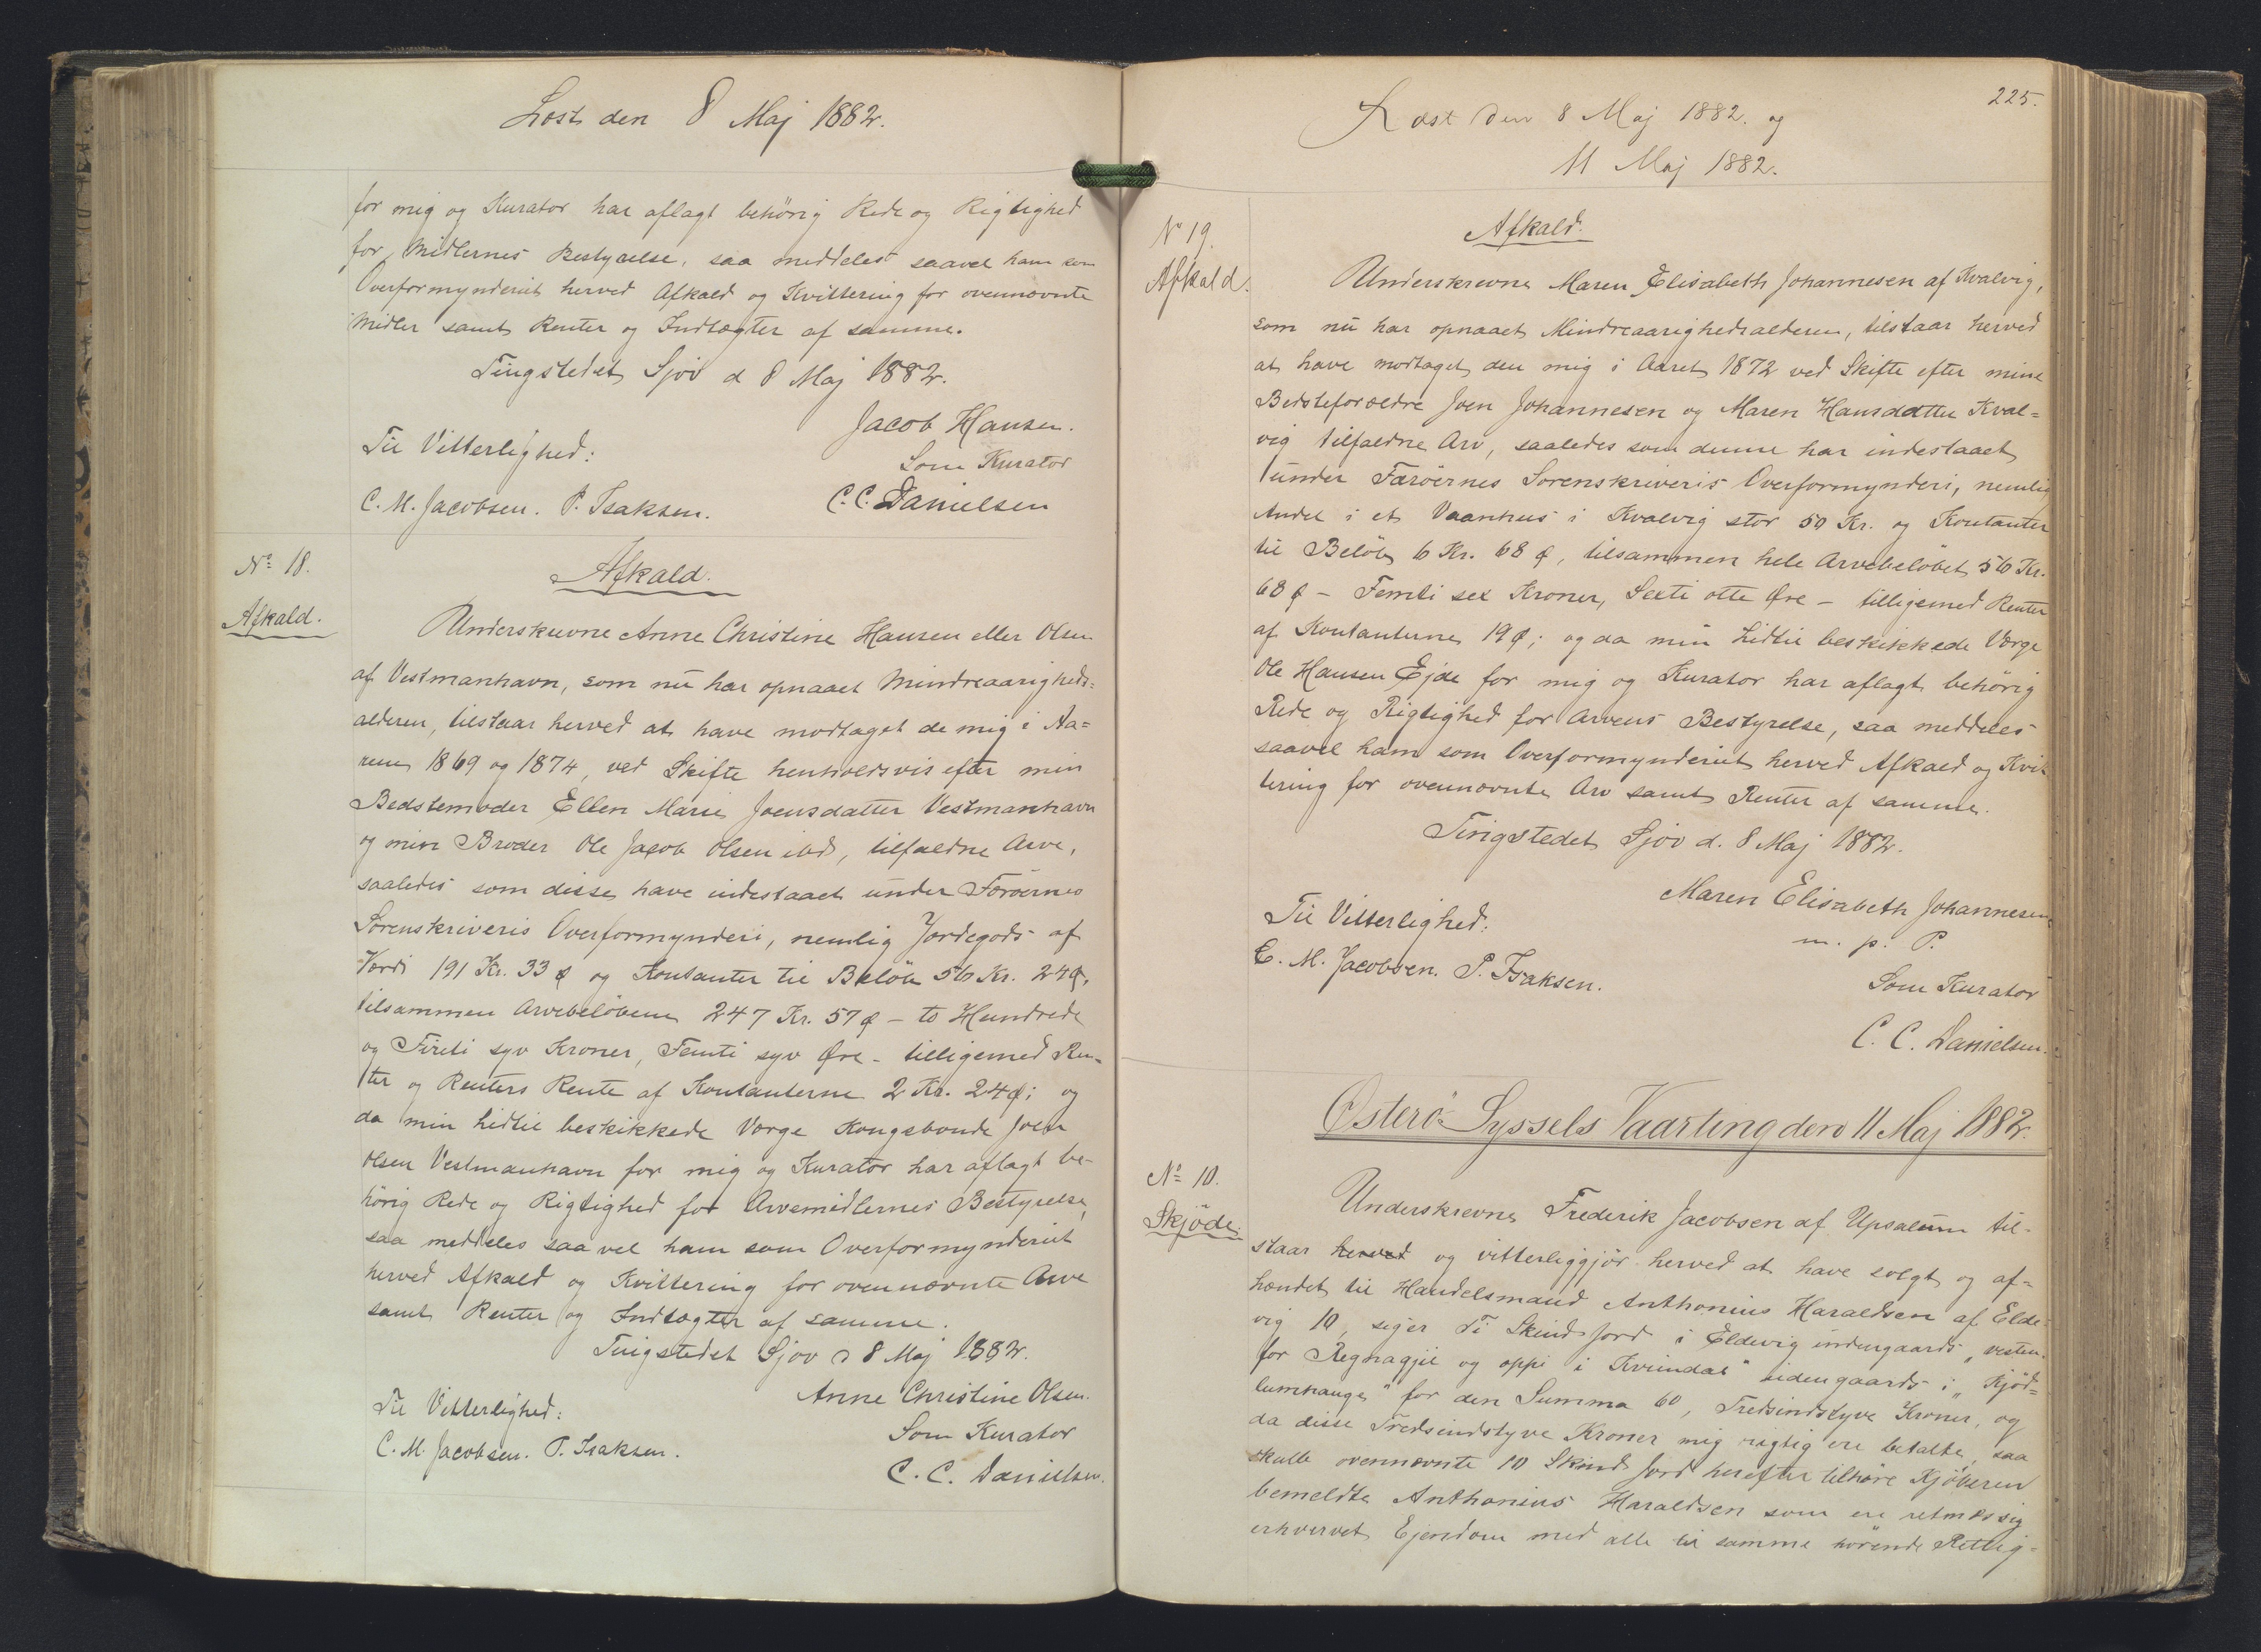 Læst den 8 Maj 1882.
for mig og Kurator har aflagt behörig Rede og Rigtighed
for Midlernes Bestyrelse, saa meddeles saavel ham som
Overformynderiet herved Afkald og Kvittering for ovennævnte
Midler samt Renter og Indtægter af samme.
Tingstedet Sjov d 8 Maj 1882.
Jacob Hansen.
Til Vitterlighed:
Som Kurator
C. M. Jacobsen. P. Isaksen.
C. C. Danielsen
No 18.
Afkald.
Afkald.
Underskrevne Anne Christine Hansen eller Olsen
af Vestmanhavn, som nu har opnaaet Mindreaarigheds=
alderen, tilstaar herved at have modtaget de mig i Aa=
rene 1869 og 1874, ved Skifte henholdsvis efter min
Bedstemoder Ellen Marie Joensdatter Vestmanhavn
og min Broder Ole Jacob Olsen ibd, tilfaldne Arve,
saaledes som disse have indestaaet under Færöernes
Sorenskriveris Overformynderi, nemlig Jordegods af
Værdi 191 Kr. 33 Ø og Kontanter til Belöb 56 Kr. 24 Ø,
tilsammen Arvebelöbene 247 Kr. 57 Ø - to Hundrede
og Firti syv Kroner, Femti syv Øre - tilligemed Ren=
ter og Renters Rente af Kontanterne 2 Kr. 24 Ø; og
da min hidtil beskikkede Værge Kongsbonde Joen
Olsen Vestmanhavn for mig og Kurator har aflagt be-
hörig Rede og Rigtighed for Arvemidlernes Bestyrelse,
saa meddeles saavel ham som Overformynderiet
herved Afkald og Kvittering for ovennævnte Arve
samt Renter og Indtægter af samme.
Tingstedet Sjov d 8 Maj 1882.
Anne Christine Olsen.
Til Vitterlighed:
Som Kurator
C. M. Jacobsen. P. Isaksen.
C. C. Danielsen.
225.
Læst den 8 Maj 1882. og
11 Maj 1882.
No 19.
Afkald.
Afkald.
Underskrevne Maren Elisabeth Johannesen af Kvalvig,
som nu har opnaaet Mindreaarighedsalderen, tilstaar herved
at have modtaget den mig i Aaret 1872 ved Skifte efter mine
Bedsteforældre Joen Johannesen og Maren Hansdatter Kval=
vig tilfaldne Arv, saaledes som denne har indestaaet
under Færöernes Sorenskriveris Overformynderi, nemlig
Andel i et Vaanhus i Kvalvig stor 50 Kr. og Kontanter
til Belöb 6 Kr. 68 Ø, tilsammen hele Arvebelöbet 56 Kr.
68 Ø - Femti sex Kroner, Sexti otte Øre - tilligemed Renter
af Kontanterne 19 Ø; og da min hidtil beskikkede Værge
Ole Hansen Ejde for mig og Kurator har aflagt behörig
Rede og Rigtighed for Arvens Bestyrelse, saa meddeles
saavel ham som Overformynderiet herved Afkald og Kvit
tering for ovennævnte Arv samt Renter af samme.
Tingstedet Sjov d. 8 Maj 1882.
Maren Elisabeth Johannesen
m. p. P.
Til Vitterlighed.
Som Kurator
C. M. Jacobsen. P. Isaksen.
C. C. Danielsen.
Østerö Syssels Vaarting den 11 Maj 1882.
No 10.
Skjöde.
Underskrevne Frederik Jacobsen af Upsalum til-
staar herved og vitterliggjör herved at have solgt og af=
hændet til Handelsmand Anthonius Haraldsen af Elde=
vig 10, siger Ti Skind Jord i Eldevig indengaards „vesten-
for Regnagjil og oppi i Kvindal" udengaards i „Kjöd=
lumhauge" for den Summa 60, Tredsindstyve Kroner, og
da disse Tredsindstyve Kroner mig rigtig ere betalte, saa
skulle ovennævnte 10 Skind Jord herefter tilhöre Kjöberen
bemeldte Anthonius Haraldsen som en retmæssig
erhvervet Ejendom med alle til samme hörende Rettig=